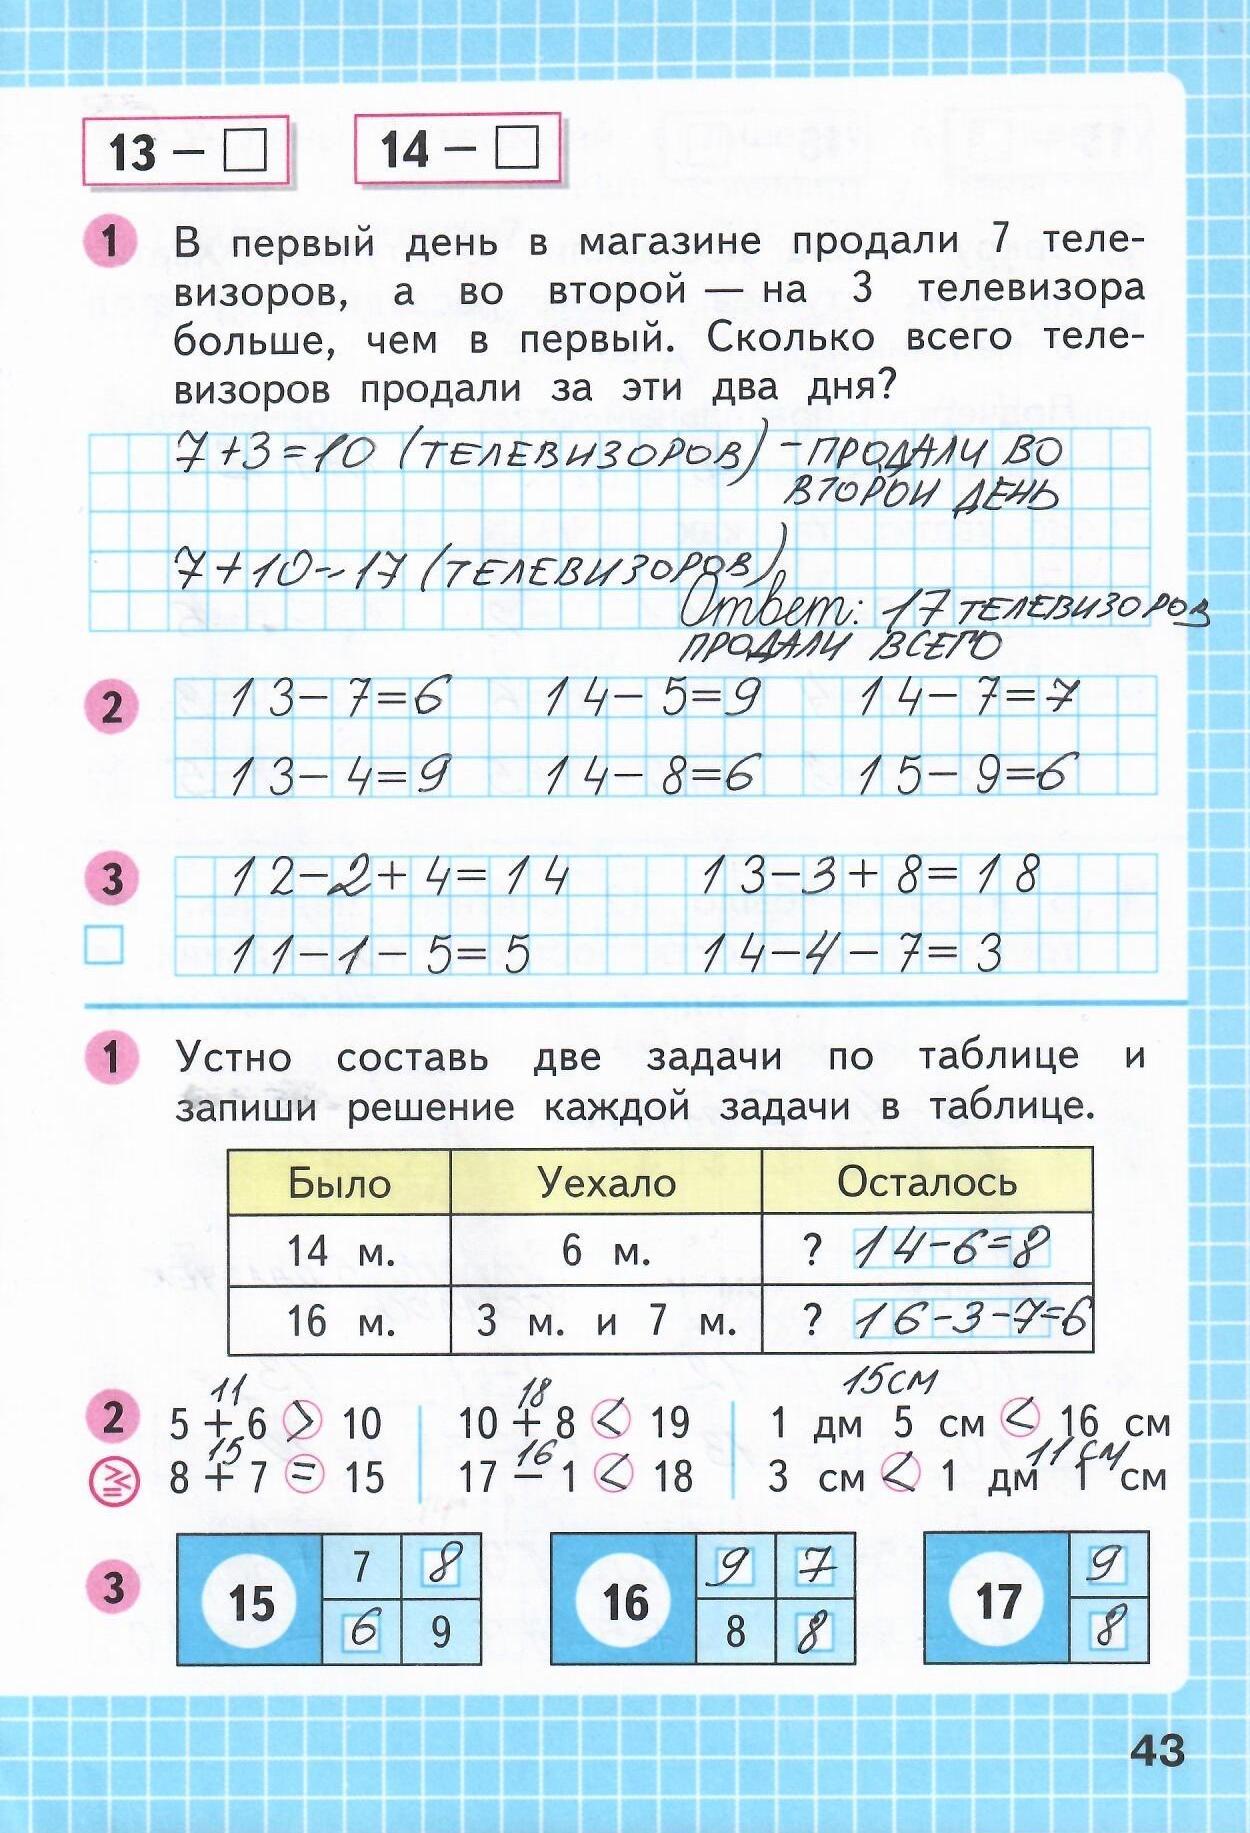 13 − □ 14 − □
1 В первый день в магазине продали 7 теле-
визоров, а во второй — на 3 телевизора
больше, чем в первый. Сколько всего теле-
визоров продали за эти два дня?
7+3=10 (ТЕЛЕВИЗОРОВ) - ПРОДАЛИ ВО
ВТОРОЙ ДЕНЬ
7+10=17 (ТЕЛЕВИЗОРОВ)
Ответ: 17 ТЕЛЕВИЗОРОВ
ПРОДАЛИ ВСЕГО
2 13−7=6 14−5=9 14−7=7
13−4=9 14−8=6 15−9=6
3 12−2+4=14 13−3+8=18
11−1−5=5 14−4−7=3
1 Устно составь две задачи по таблице и
запиши решение каждой задачи в таблице.
Было Уехало Осталось
14 м. 6 м. ? 14−6=8
16 м. 3 м. и 7 м. ? 16−3−7=6
11 18 15см
2 5 + 6 > 10 10 + 8 < 19 1 дм 5 см < 16 см
15 16 11см
8 + 7 = 15 17 − 1 < 18 3 см < 1 дм 1 см
7 8 9 7 9
3 15 16 17
6 9 8 8 8
43